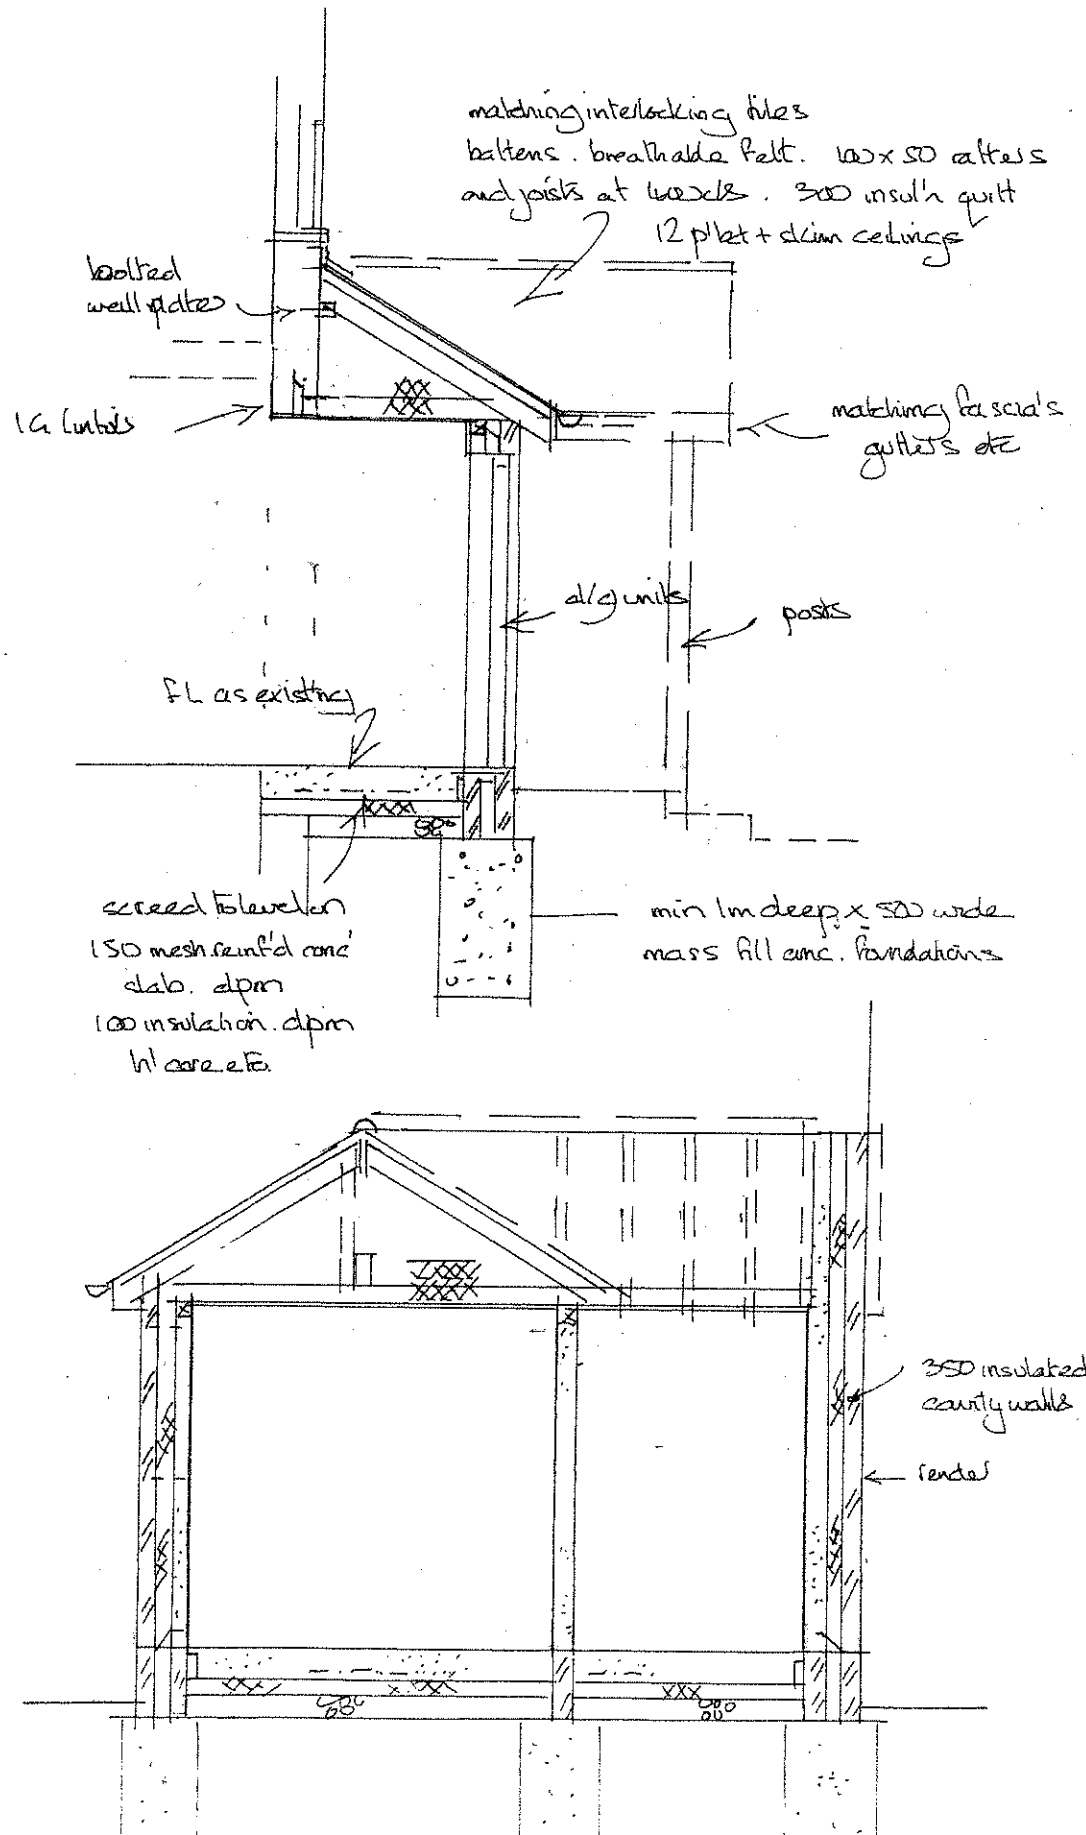 matching interlocking tiles
battens. breathable felt. 100x50 rafters
and joists at 400c/s. 300 insul'n quilt
12 p'bd + skim ceilings
bolted
wall plates
IG lintols
matching fascia's
gutters etc
d/g units
posts
FL as existing
screed to level on
150 mesh reinf'd conc'
slab. dpm
100 insulation. dpm
h'core etc.
min 1m deep x 500 wide
mass fill conc. foundations
350 insulated
cavity walls
render